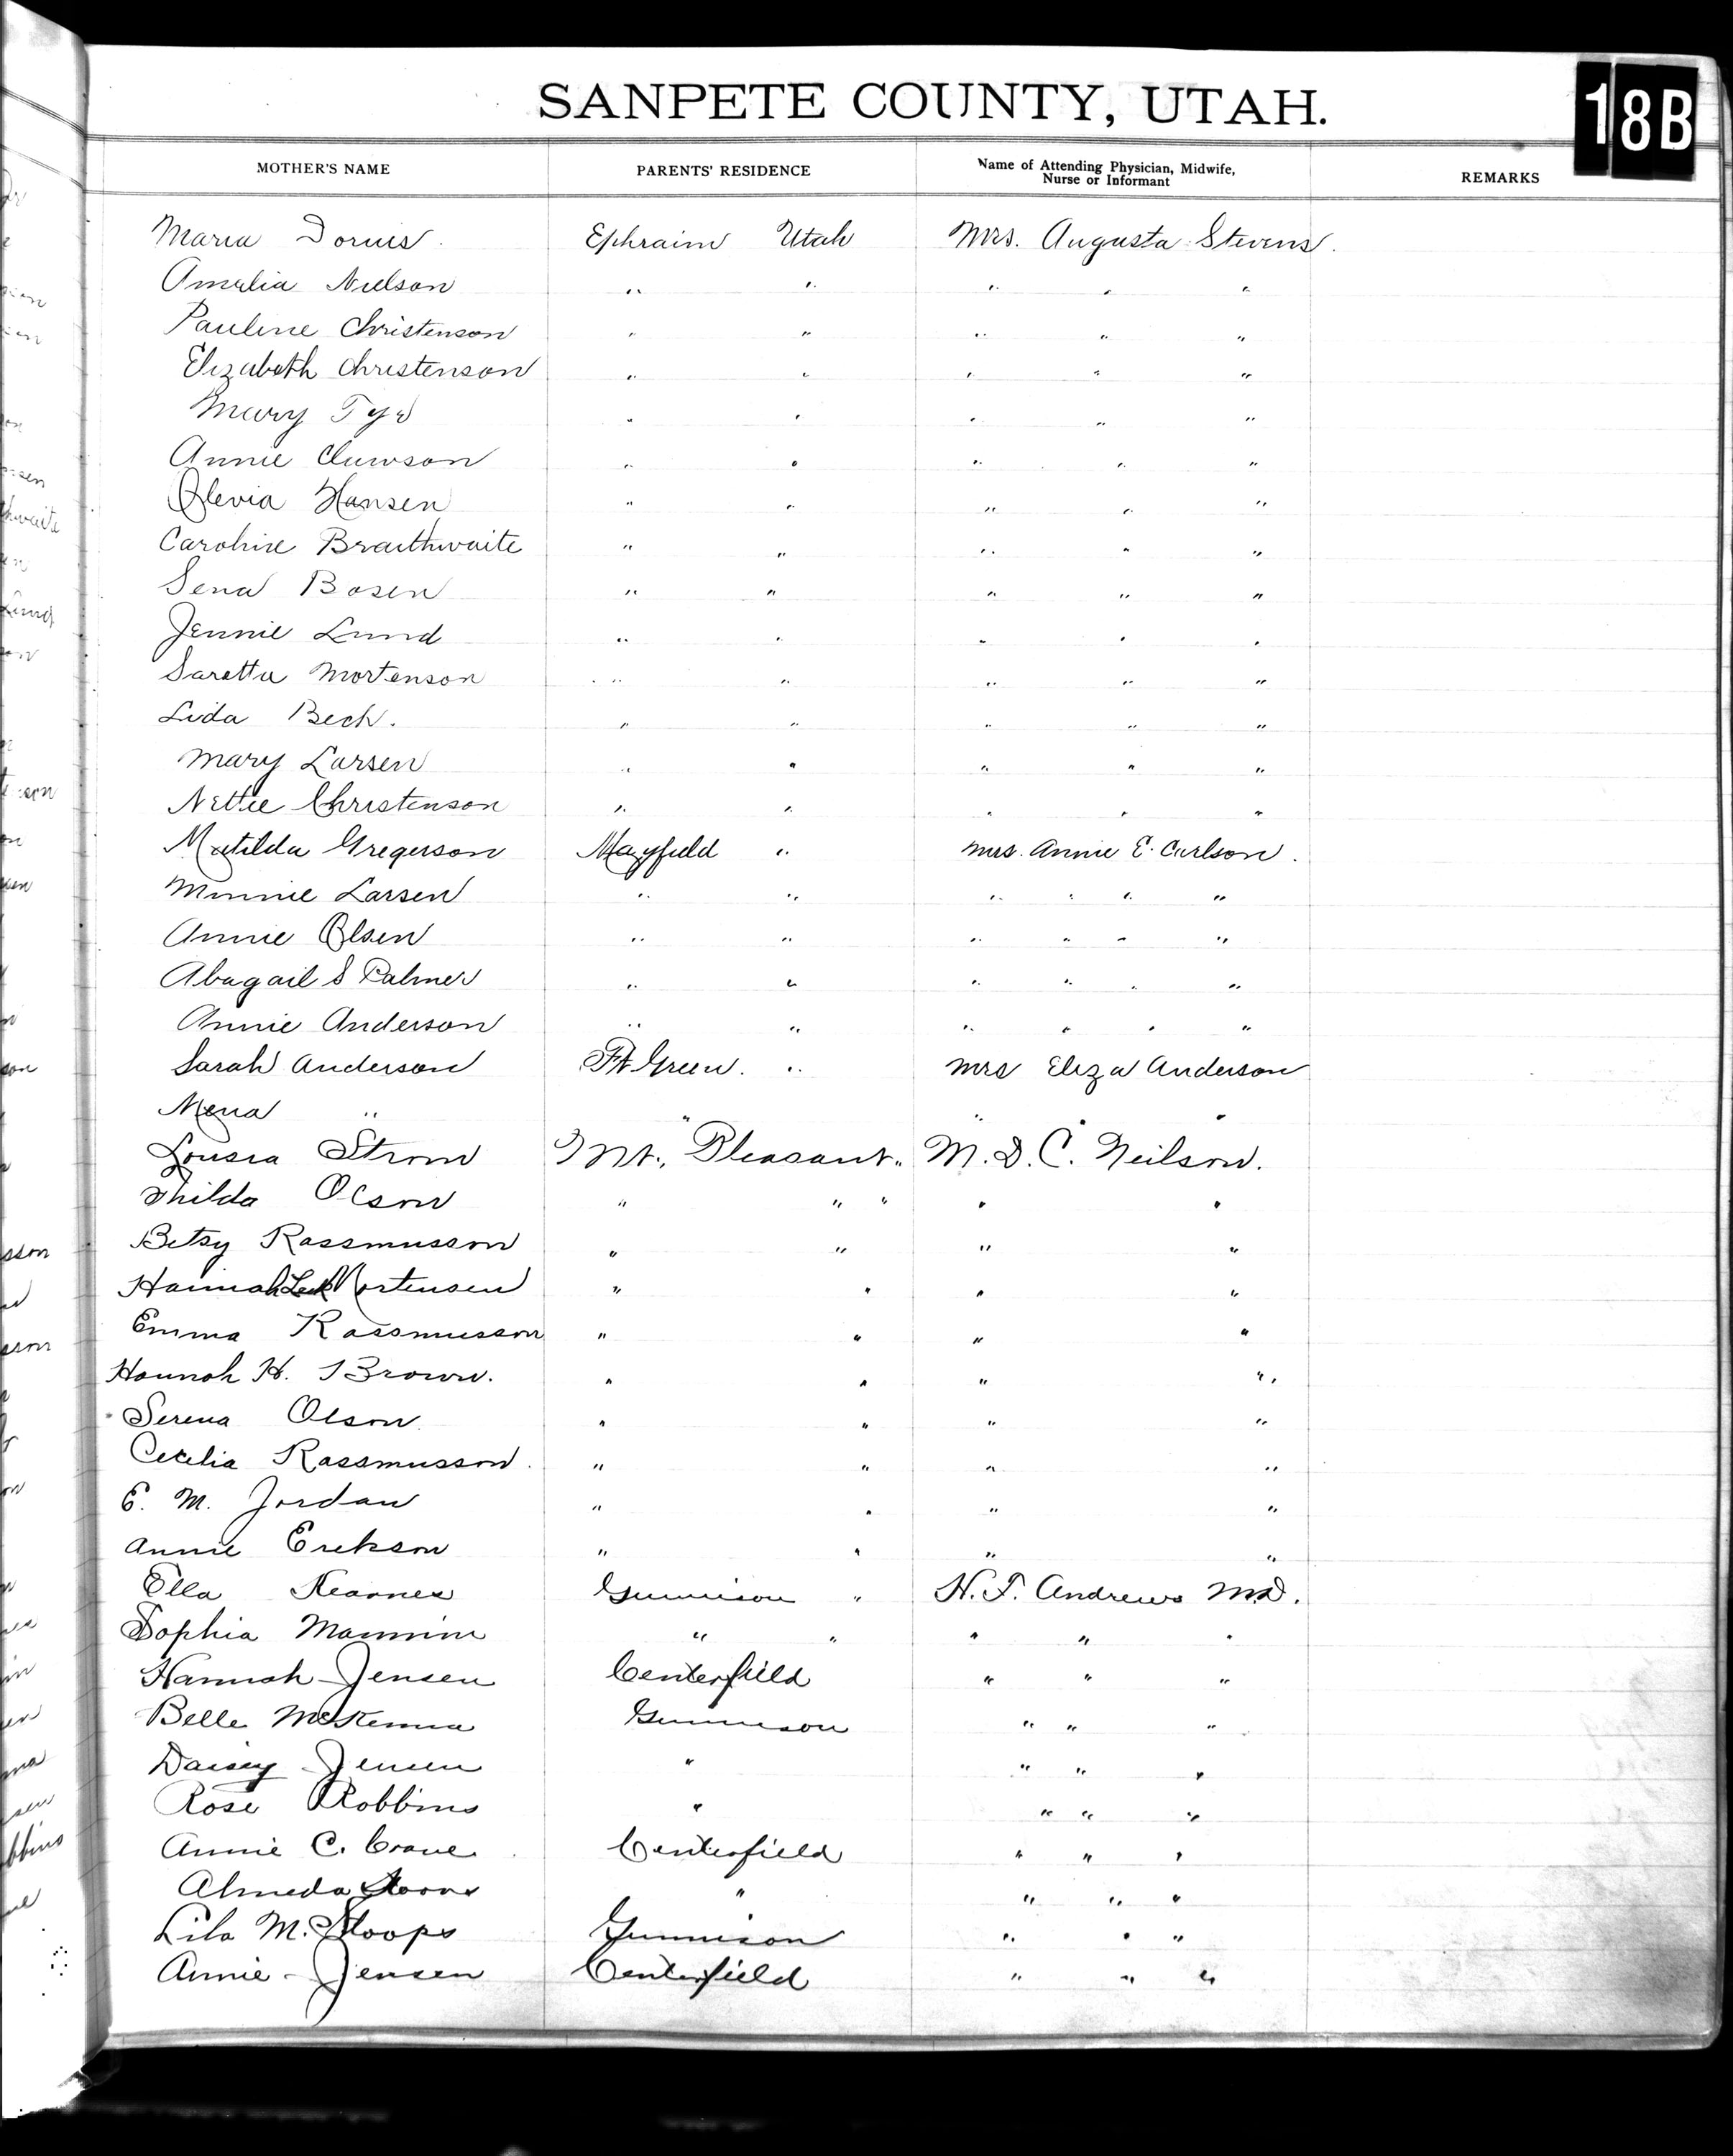 SANPETE COUNTY, UTAH.
18B
MOTHER'S NAME PARENTS' RESIDENCE Name of Attending Physician, Midwife, Nurse or Informant REMARKS
Maria Dorius. Ephraim Utah Mrs. Augusta Stevens.
Amelia Nielson " " " " "
Pauline Christenson " " " " "
Elizabeth Christenson " " " " "
Mary Tye " " " " "
Annie Clawson " " " " "
Olevia Hansen " " " " "
Caroline Braithwaite " " " " "
Sena Bosen " " " " "
Jennie Lund " " " " "
Saretta Mortenson " " " " "
Lida Bech. " " " " "
Mary Larsen " " " " "
Nettie Christenson " " " " "
Matilda Gregerson Mayfield " Mrs. Annie E. Carlson.
Minnie Larsen " " " " " "
Annie Olsen " " " " " "
Abagail S Palmer " " " " " "
Annie Anderson " " " " " "
Sarah Anderson Ft Green. " Mrs Eliza Anderson
Mena " " " "
Lousia Strom Mt. Pleasant " M. D. C. Neilson.
Thilda Olson " " " " "
Betsy Rassmusson " " " "
Hannah Mortensen " " " "
Emma Rassmusson " " " "
Hannah H. Brown. " " " "
Serena Olson " " " "
Cecelia Rassmusson. " " " "
E. M. Jordan " " " "
Annie Erekson " " " "
Ella Kearnes Gunnison " H. T. Andrews M.D.
Sophia " " " " "
Hannah Jensen Centerfield " " "
Belle McKenna Gunnison " " "
Daisey Jensen " " " "
Rose Robbins " " " "
Annie C. Crane Centerfield " " "
Almeda " " " "
Lila M. Stoops Gunnison " " "
Annie - Jensen Centerfield " " "